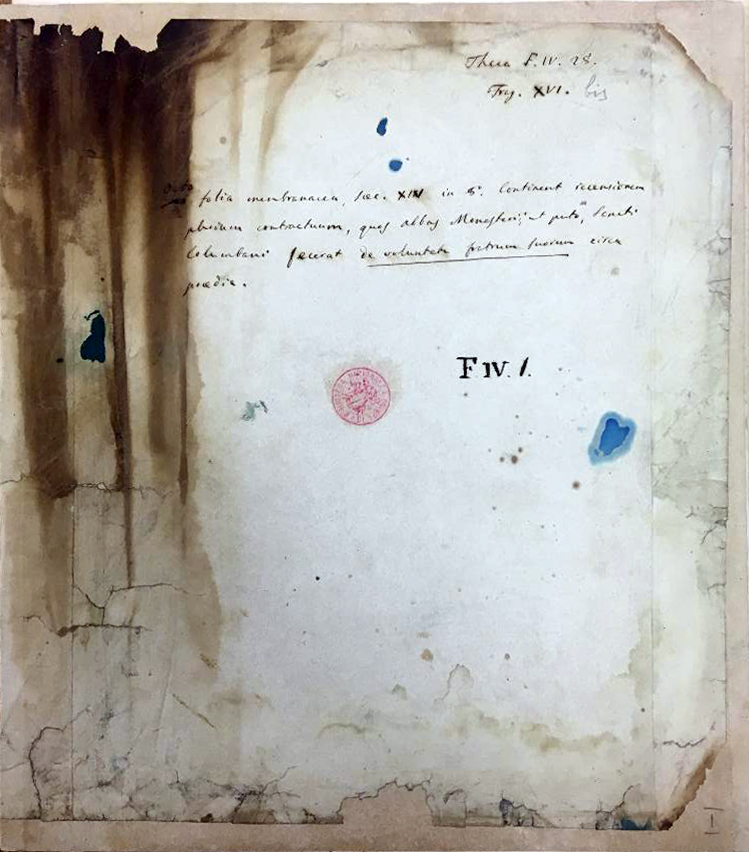 Theca F. IV. 28.
Frag. XVI. bis
Octo folia membranacea, sæc. XIV in 8°. Continent recensionem
plurium contractuum, quos abbas Monasterii, ut puto, Sancti
Columbani fecerat de voluntate fratrum suorum circa
prædia.
F IV. 1.
I